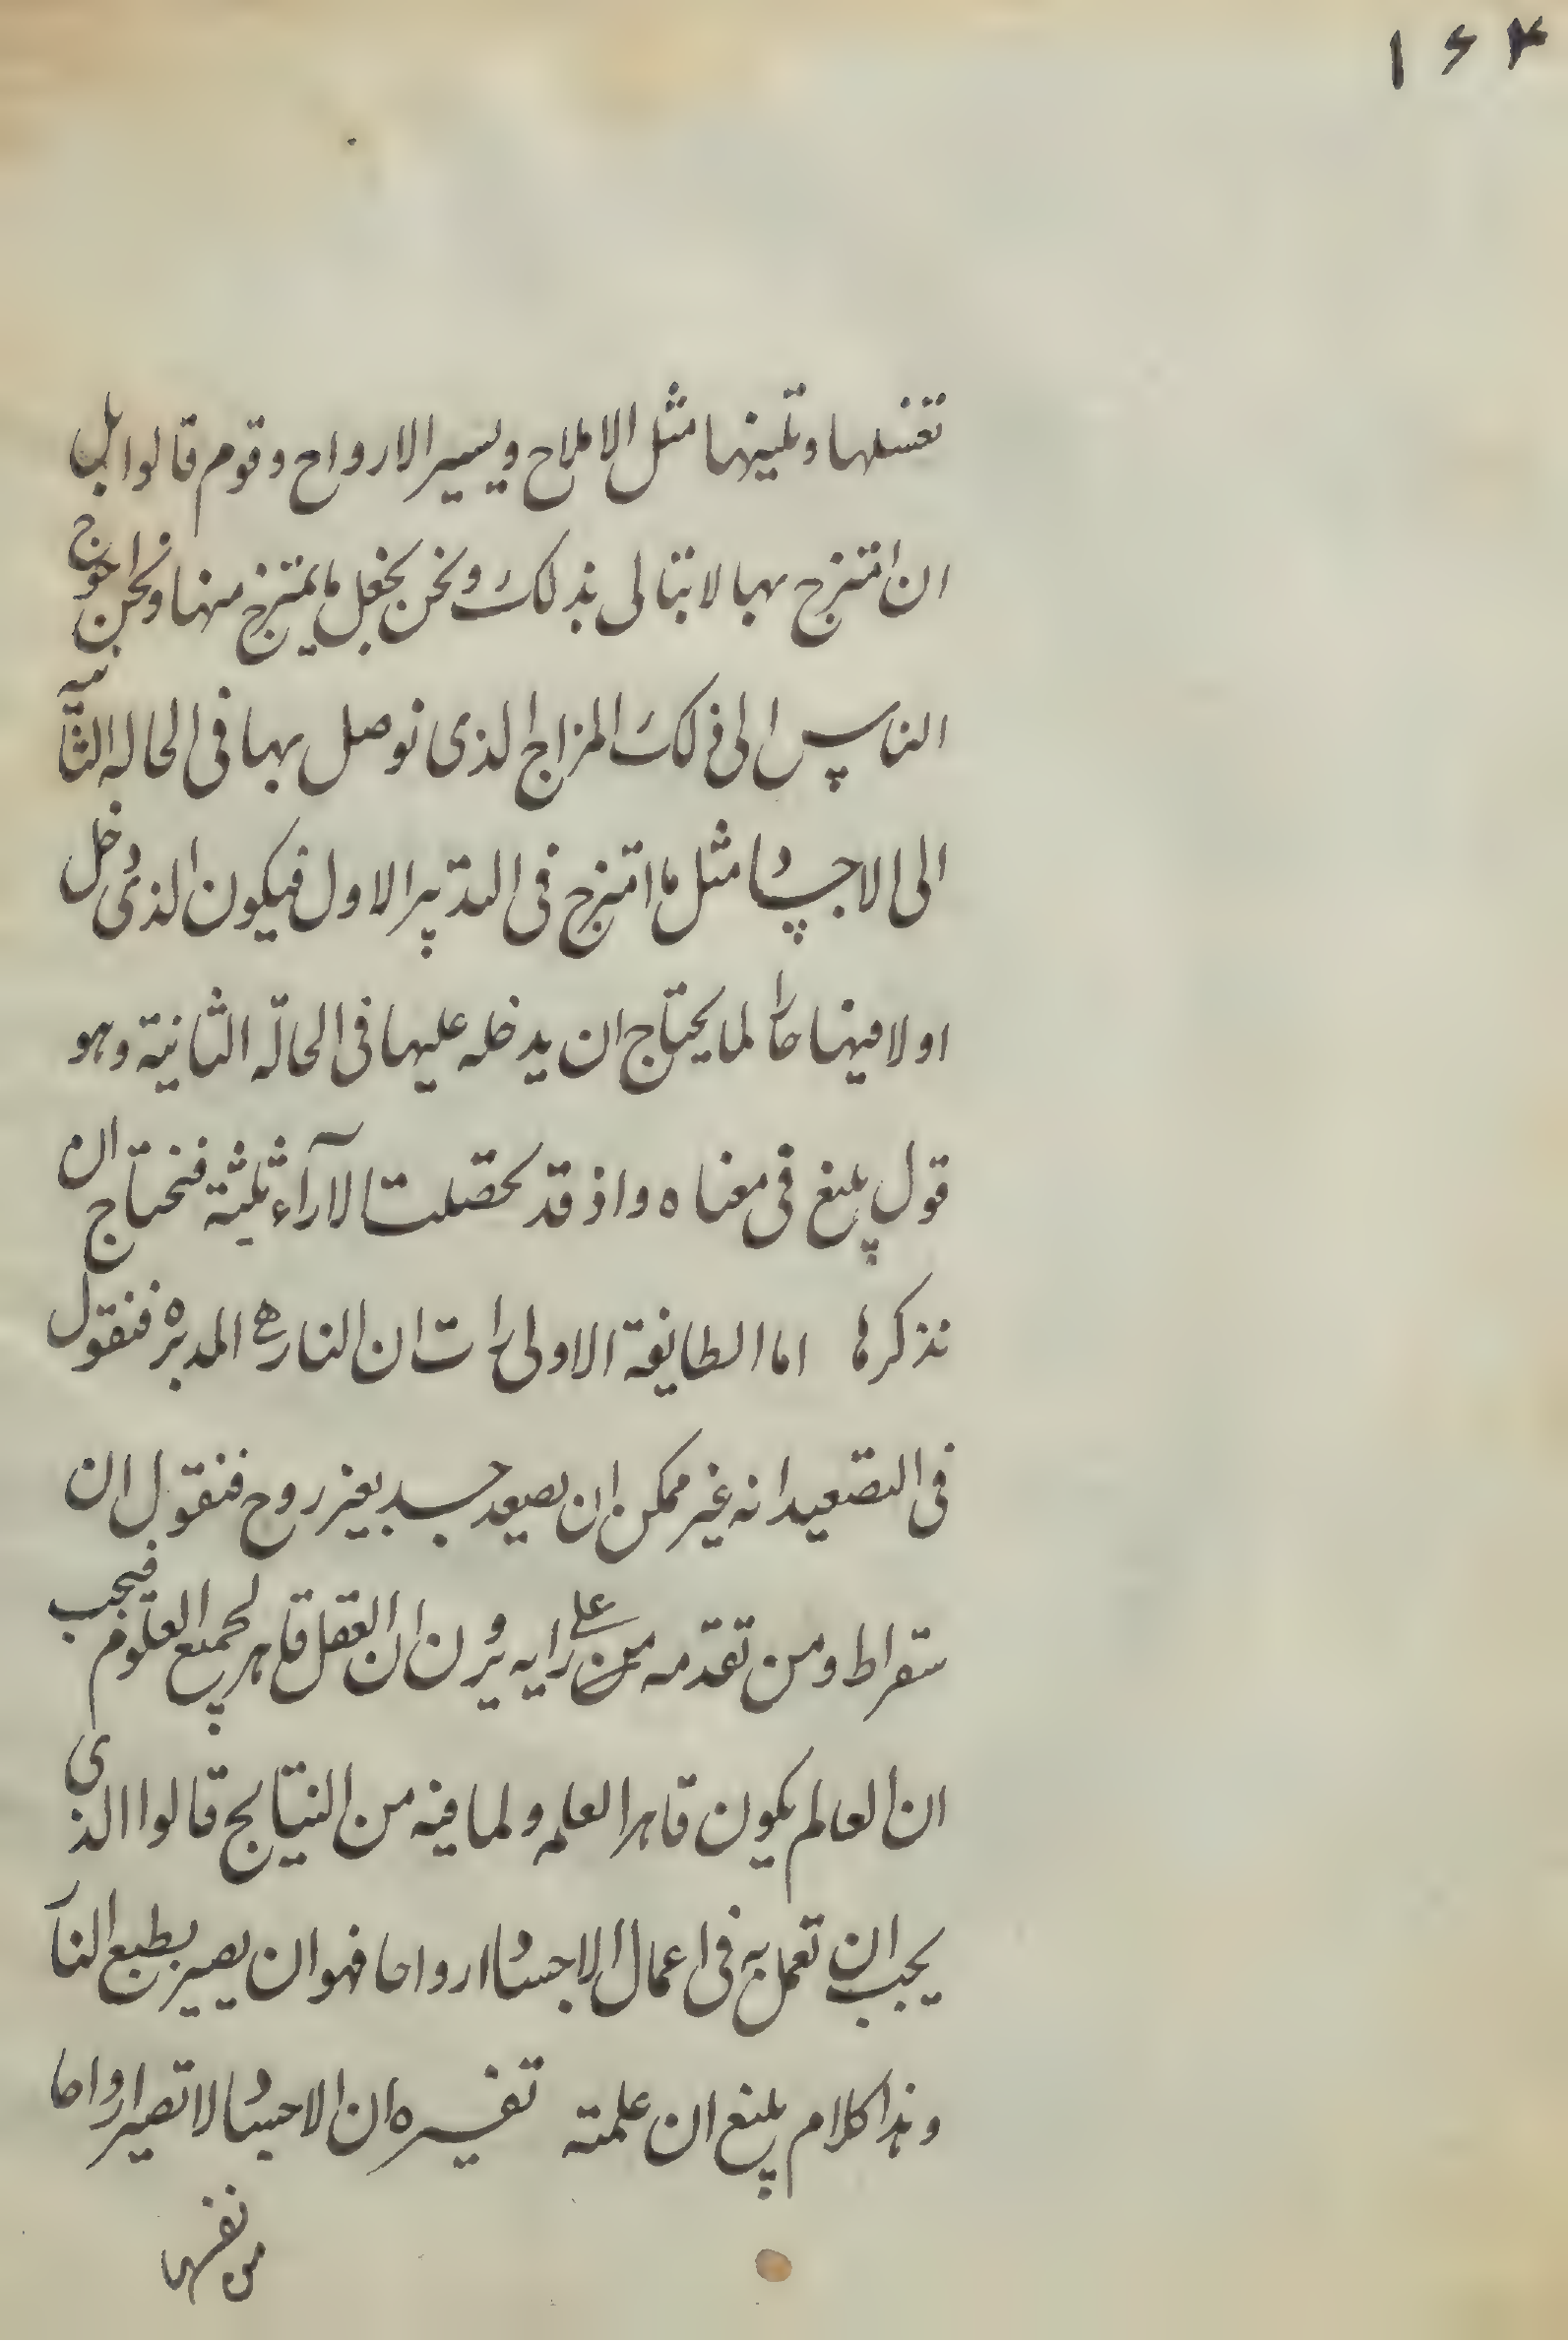 ۱۶۴
تغسلها وتلينها مثل الاملاح ويسير الارواح وقوم قالوا بل
ان امتزج بها لا نبالى بذلك ونحن نجعل ما يمتزج منها ونحن احوج
الناس الى ذلك المزاج الذى نوصل بها فى الحاله الثانية
الى الاجساد مثل ما امتزج فى التدبير الاول فيكون الذى دخل
اولا فيها لما يحتاج ان يدخله عليها فى الحالة الثانية وهو
قول بليغ فى معناه واذ قد تحصلت الآراء ثلثة فنحتاج ان
نذكرها اما الطايفة الاولى رات ان النار هى المدبره فنقول
فى التصعيد انه غير ممكن ان يصعد جسد بغير روح فنقول ان
سقراط ومن تقدمه من على رايه يرون ان العقل قاهر لجميع العلوم فيجب
ان العالم يكون قاهرا لعلمه ولما فيه من النتايج قالوا الذى
يجب ان تعمل به فى اعمال الاجساد ارواحا فهو ان يصير بطبع النار
وهذا كلام بليغ ان علمته تفسيره ان الاجساد لا تصير ارواحا
من نفسها